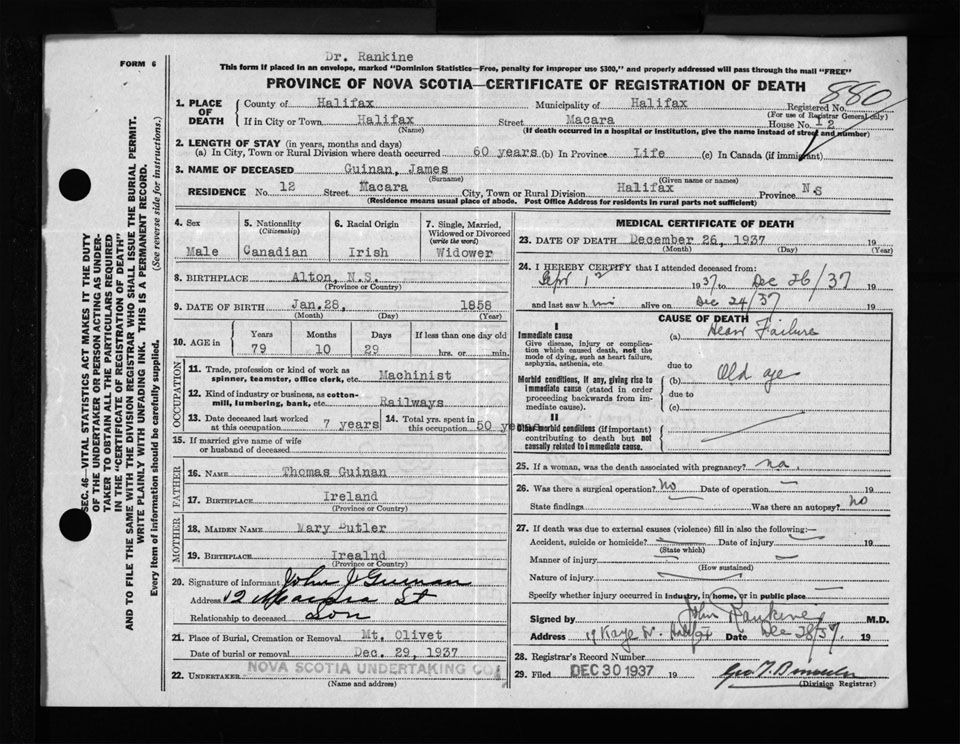 Dr. Rankine
FORM 6
This form if placed in an envelope, marked "Dominion Statistics—Free, penalty for improper use $300," and properly addressed will pass through the mail "FREE"
PROVINCE OF NOVA SCOTIA—CERTIFICATE OF REGISTRATION OF DEATH
880
1. PLACE OF DEATH
County of Halifax Municipality of Halifax Registered No.
(For use of Registrar General only)
If in City or Town Halifax Street Macara House No. 12
(Name) (If death occurred in a hospital or institution, give the name instead of street and number)
2. LENGTH OF STAY (in years, months and days)
(a) In City, Town or Rural Division where death occurred 60 years (b) In Province Life (c) In Canada (if immigrant)
3. NAME OF DECEASED Guinan, James
(Surname) (Given name or names)
RESIDENCE No. 12 Street Macara City, Town or Rural Division Halifax Province N.S
(Residence means usual place of abode. Post Office Address for residents in rural parts not sufficient)
4. Sex
Male
5. Nationality
(Citizenship)
Canadian
6. Racial Origin
Irish
7. Single, Married, Widowed or Divorced
(write the word)
Widower
8. BIRTHPLACE Alton, N.S.
(Province or Country)
9. DATE OF BIRTH Jan.28, 1858
(Month) (Day) (Year)
10. AGE in
Years Months Days If less than one day old
79 10 29 hrs. or min.
OCCUPATION
11. Trade, profession or kind of work as spinner, teamster, office clerk, etc. Machinist
12. Kind of industry or business, as cotton-mill, lumbering, bank, etc. Railways
13. Date deceased last worked at this occupation 7 years
14. Total yrs. spent in this occupation 50 years
15. If married give name of wife or husband of deceased
FATHER
16. NAME Thomas Guinan
17. BIRTHPLACE Ireland
(Province or Country)
MOTHER
18. MAIDEN NAME Mary Butler
19. BIRTHPLACE Irealnd
(Province or Country)
20. Signature of informant John J Guinan
Address 12 Macara St
Relationship to deceased Son
21. Place of Burial, Cremation or Removal Mt. Olivet
Date of burial or removal Dec. 29, 1937
22. UNDERTAKER NOVA SCOTIA UNDERTAKING CO.
(Name and address)
MEDICAL CERTIFICATE OF DEATH
23. DATE OF DEATH December 26, 1937 19
(Month) (Day) (Year)
24. I HEREBY CERTIFY that I attended deceased from:
1937 to Dec 26/37 19
and last saw him alive on Dec 24/37 19
CAUSE OF DEATH
I
Immediate cause
Give disease, injury or complication which caused death, not the mode of dying, such as heart failure, asphyxia, asthenia, etc.
(a) Heart Failure
due to
Morbid conditions, if any, giving rise to immediate cause (stated in order proceeding backwards from immediate cause).
(b) Old age
due to
(c)
II
Other morbid conditions (if important) contributing to death but not causally related to immediate cause.
25. If a woman, was the death associated with pregnancy? no.
26. Was there a surgical operation? No Date of operation 19
State findings Was there an autopsy? No
27. If death was due to external causes (violence) fill in also the following:—
Accident, suicide or homicide? Date of injury 19
(State which)
Manner of injury
(How sustained)
Nature of injury
Specify whether injury occurred in Industry, in home, or in public place
Signed by John Rankine M.D.
Address 17 Kaye St. Date Dec 28/37. 19
28. Registrar's Record Number
29. Filed DEC 30 1937 19
(Division Registrar)
SEC. 46—VITAL STATISTICS ACT MAKES IT THE DUTY
OF THE UNDERTAKER OR PERSON ACTING AS UNDER-
TAKER TO OBTAIN ALL THE PARTICULARS REQUIRED
IN THE "CERTIFICATE OF REGISTRATION OF DEATH"
AND TO FILE THE SAME WITH THE DIVISION REGISTRAR WHO SHALL ISSUE THE BURIAL PERMIT.
WRITE PLAINLY WITH UNFADING INK. THIS IS A PERMANENT RECORD.
Every item of information should be carefully supplied. (See reverse side for instructions.)